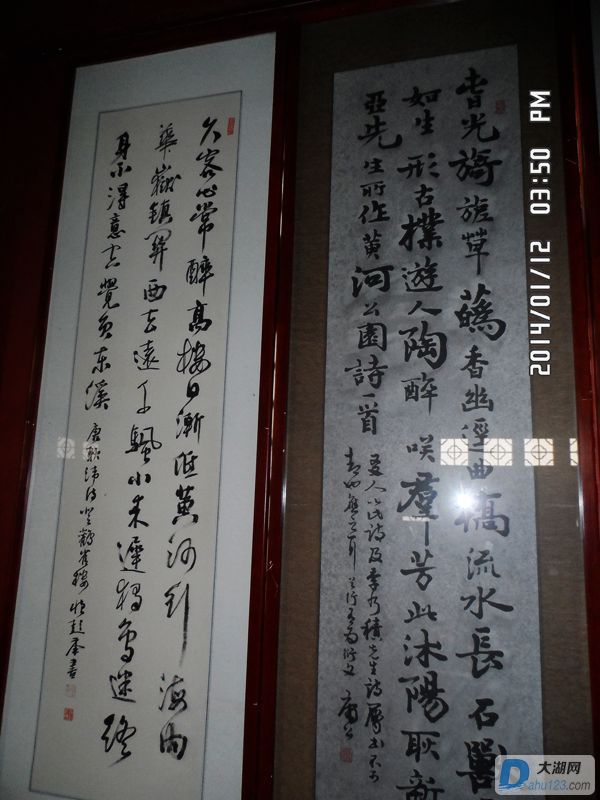 春光旖旎草香幽徑曲橋流水長石獸
如生形古樸遊人陶醉咲羣芳此沐陽耿新
亞先生所作黄河公園詩一首
久客心常醉高楼日漸低黄河到海内
華嶽鎮関西去遠千颿小来遲獨鳥迷終
身不得意空覺負東溪 唐耿湋诗登鸛雀樓 書
2014/01/12 03:50 PM
大湖网
dahu123.com